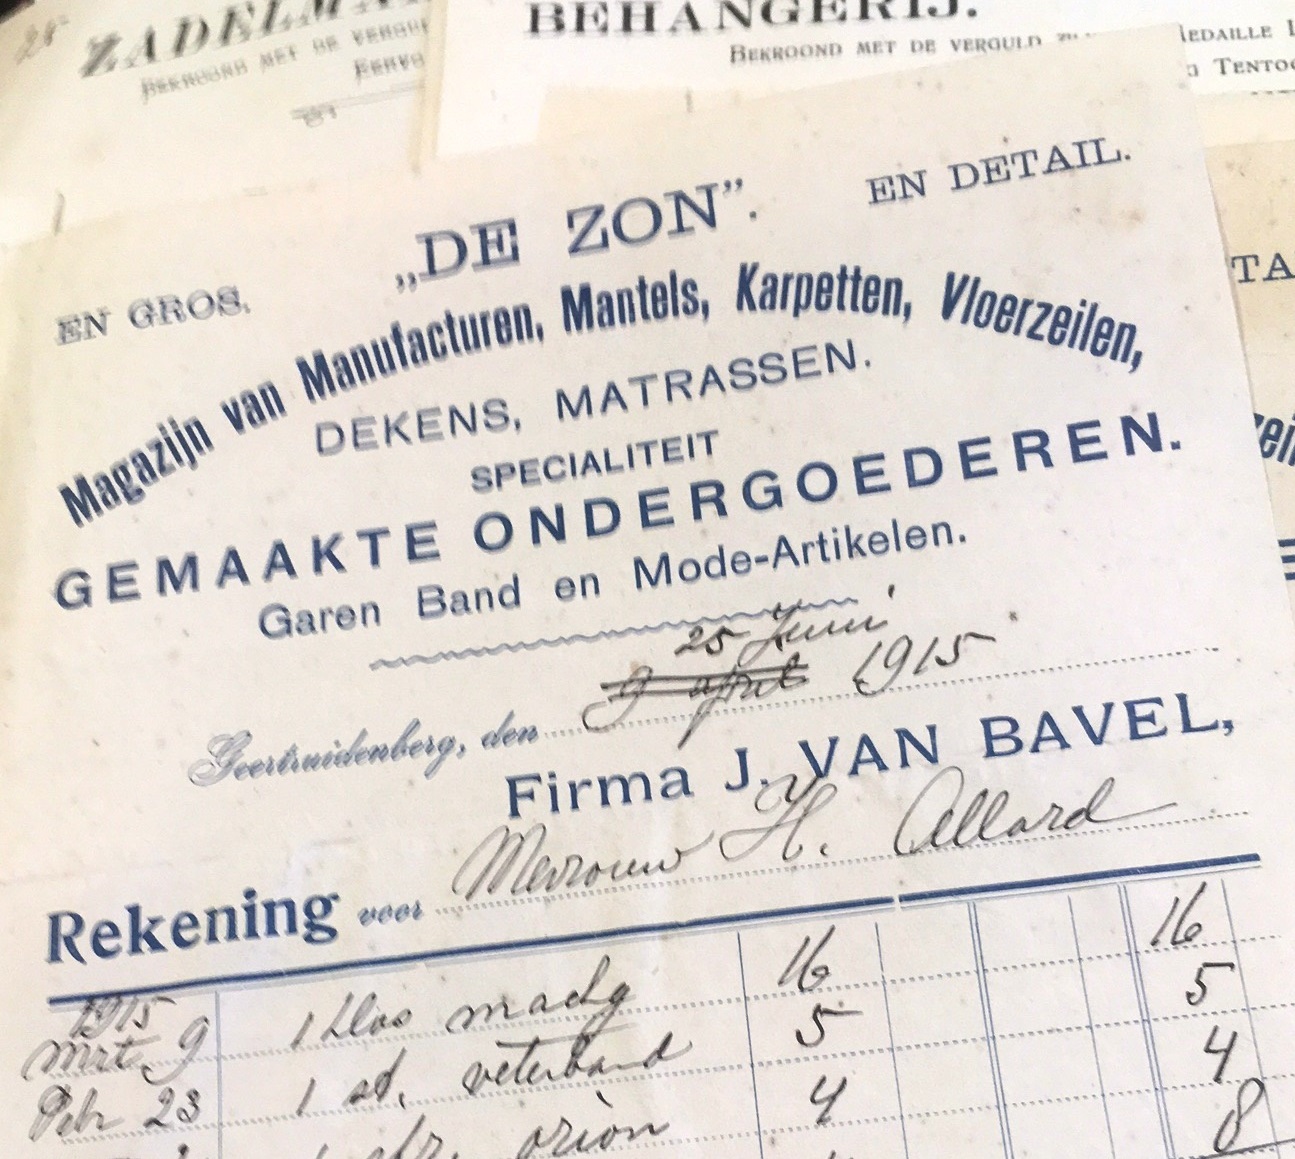 25
ZADELMA
BEKROOND MET DE VERGU
BEHANGERIJ.
BEKROOND MET DE VERGULD
MEDAILLE
TENTOO
„DE ZON”.
EN GROS,
EN DETAIL.
Magazijn van Manufacturen, Mantels, Karpetten, Vloerzeilen,
DEKENS, MATRASSEN.
SPECIALITEIT
GEMAAKTE ONDERGOEDEREN.
Garen Band en Mode-Artikelen.
25 Juni
Geertruidenberg, den 9 april 1915
Firma J. VAN BAVEL,
Rekening voor Mevrouw H. Allard
1915
Mrt. 9 1 klos 16 16
23 1 st. veterband 5 5
4 4
8
TA
zeil